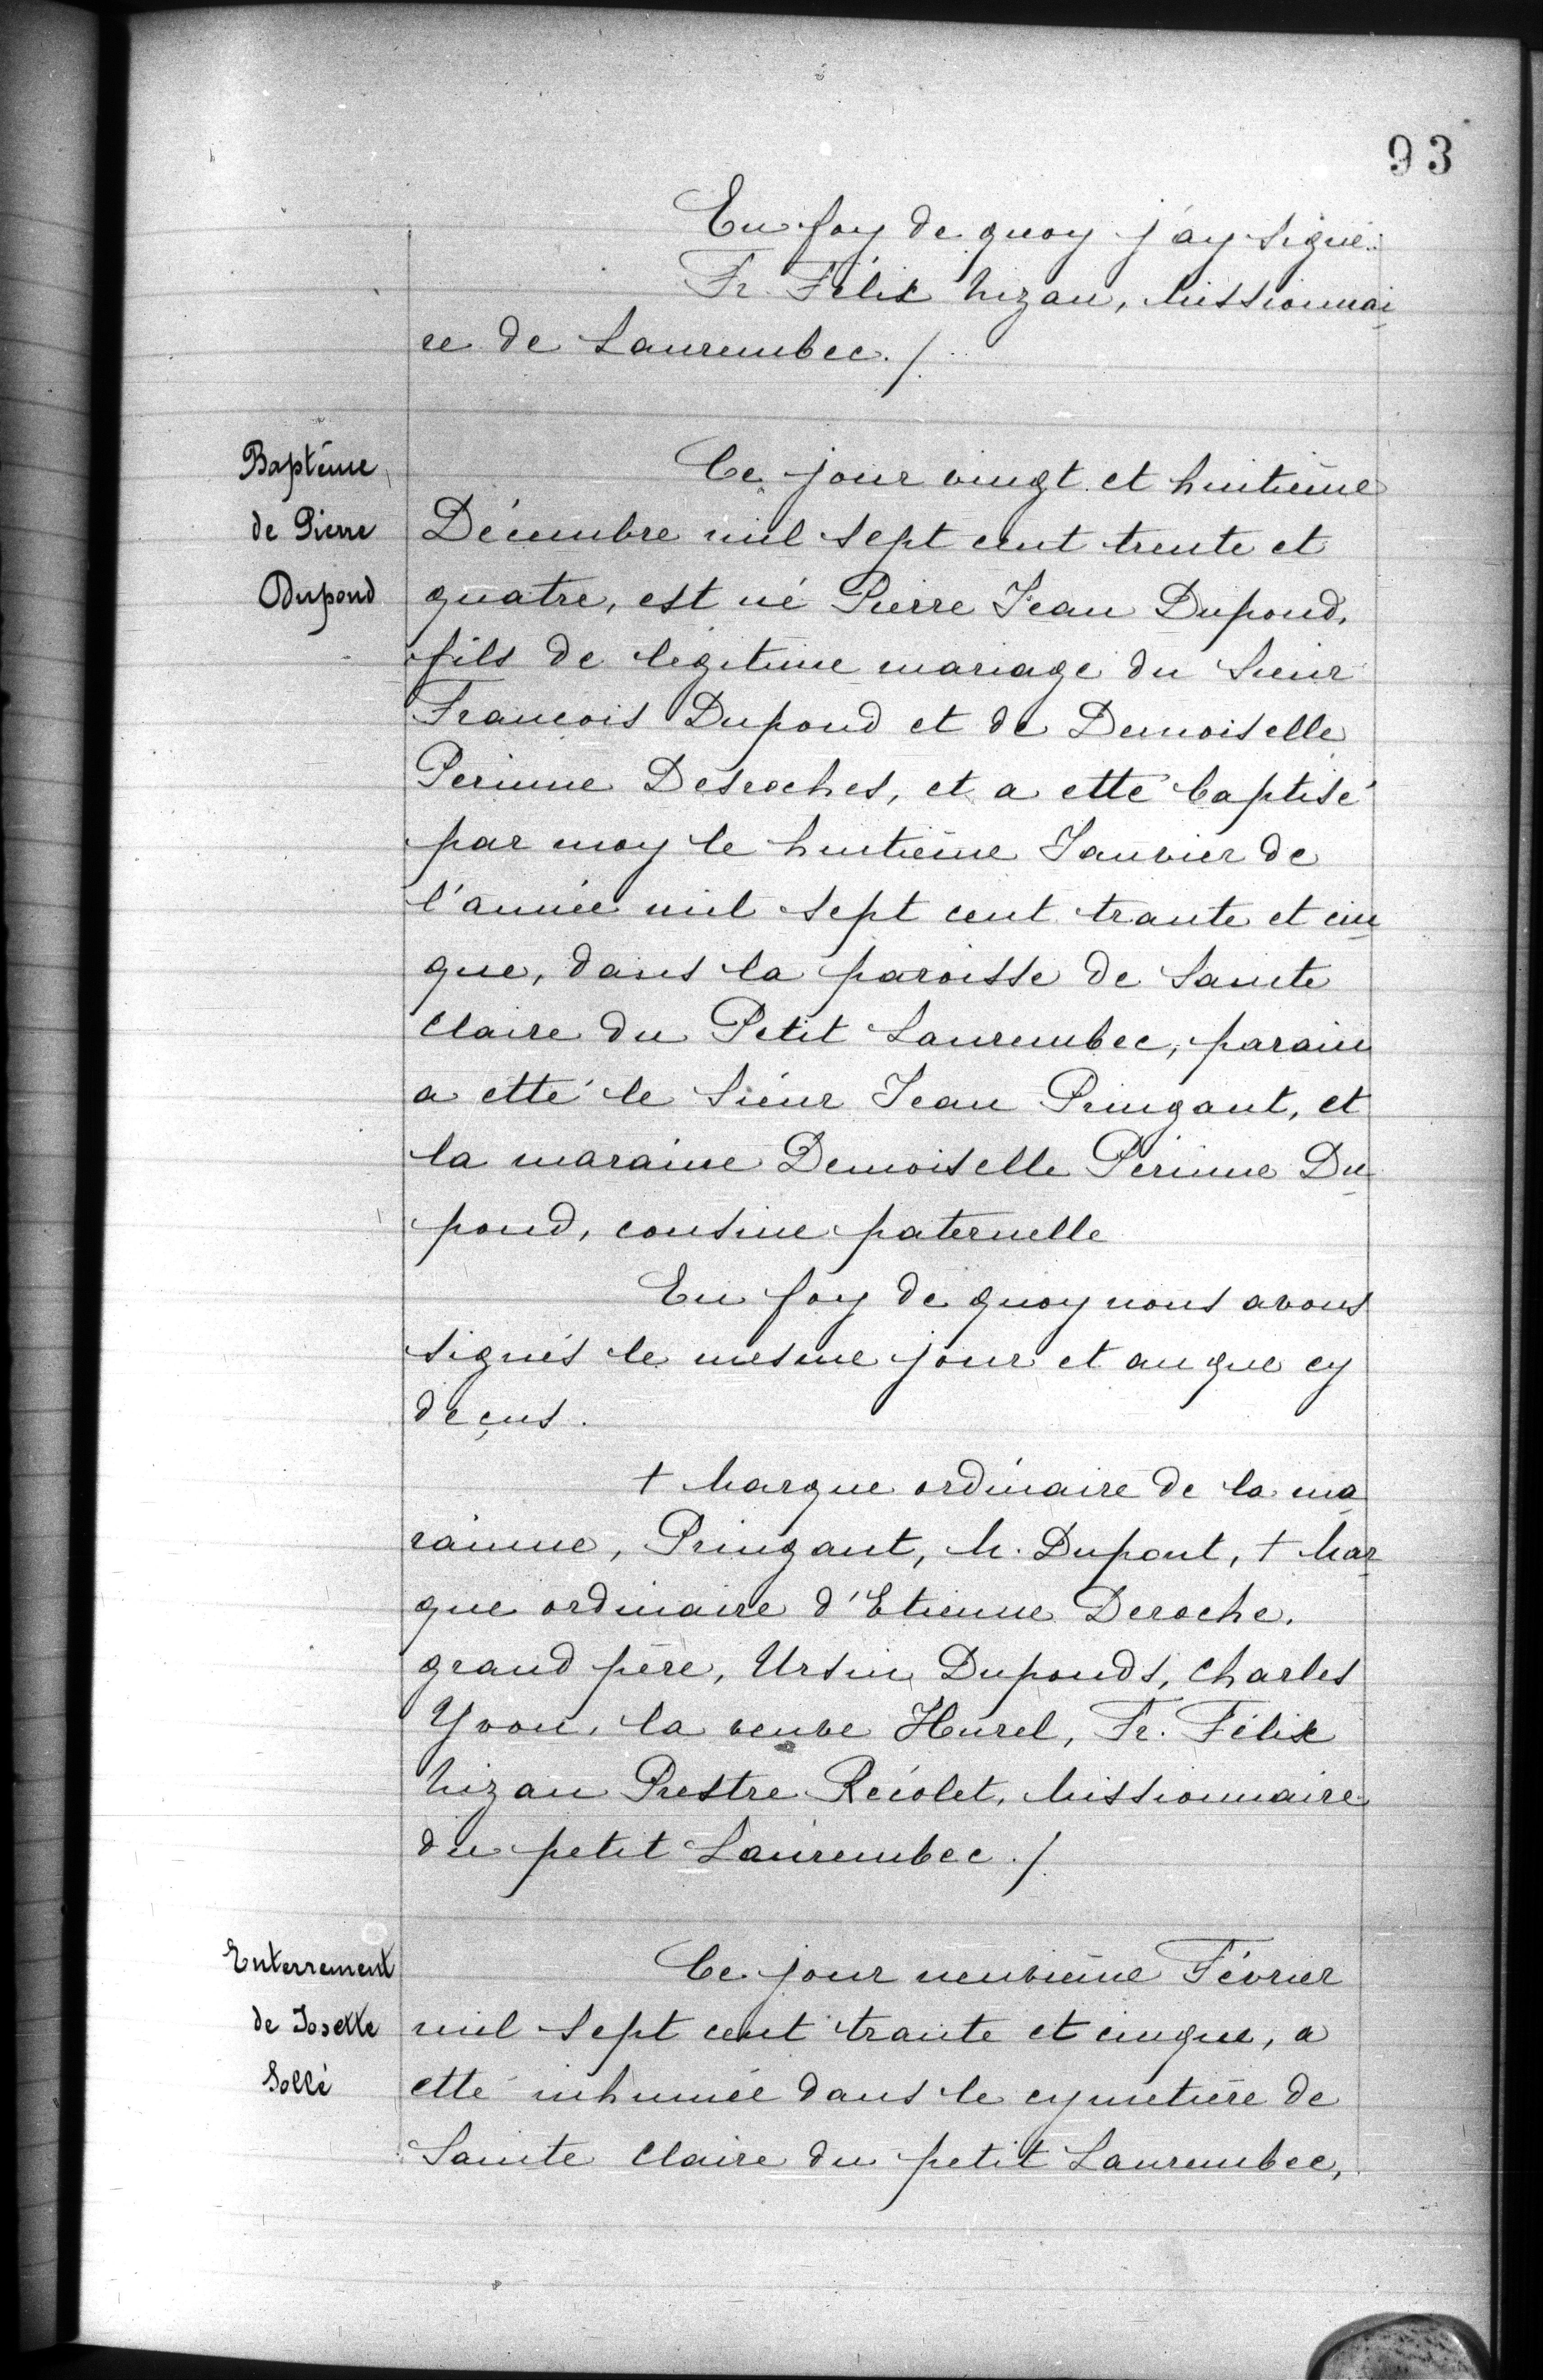 93
En foy de quoy j'ay signé.
Fr. Félix Nizan, Missionnai
re de Laurembec./.
Baptême
de Pierre
Dupond
Ce jour vingt et huitième
Décembre mil sept cent trente et
quatre, est né Pierre Jean Dupond,
fils de légitime mariage du Sieur
François Dupond et de Demoiselle
Perinne Desroches, et a etté baptisé
par moy le huitième Janvier de
l'année mil sept cent trante et cin
que, dans la paroisse de Sainte
Claire du Petit Laurembec, parain
a etté le Sieur Jean Pringant, et
la maraine Demoiselle Perinne Du
pond, cousine paternelle
En foy de quoy nous avons
signés le mesme jour et an que cy
deçus.
† Marque ordinaire de la ma
rainne, Pringant, M. Dupont, † Mar
que ordinaire d'Etienne Deroche,
grand père, Ursin Duponds, Charles
Yvon, la veuve Hurel, Fr. Félix
Nizan Prestre Récolet, Missionnaire
du petit Laurembec./.
Enterrement
de Josette
Sollé
Ce jour neuvième Février
mil sept cent trante et cinque, a
etté inhumée dans le cymetière de
Sainte Claire du petit Laurembec,